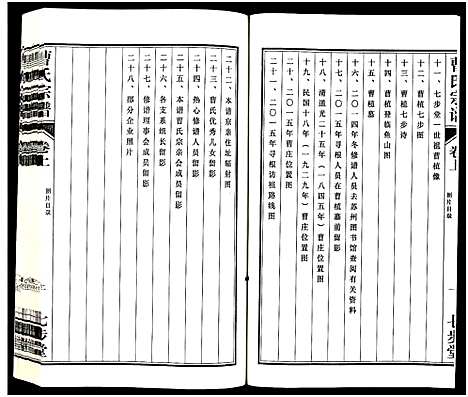 曹氏宗谱
卷上
图片目录
一
七步堂
十一、七步堂一世祖曹植像
十二、曹植七步图
十三、曹植七步诗
十四、曹植登临鱼山图
十五、曹植墓
十六、二〇一五年寻根人员在曹植墓前留影
十七、二〇一四年冬修谱人员去苏州图书馆查阅有关资料
十八、清道光二十五年（一八四五年）曹庄位置图
十九、民国十八年（一九二九年）曹庄位置图
二十、二〇一五年曹庄位置图
二十一、二〇一五年寻根访祖路线图
二十二、本谱宗亲住址辐射图
二十三、曹氏优秀儿女留影
二十四、热心修谱人员留影
二十五、本谱曹氏宗亲会成员留影
二十六、各支系组长留影
二十七、修谱理事会成员留影
二十八、部分企业照片
曹氏宗谱
卷上
图片目录
二
七步堂